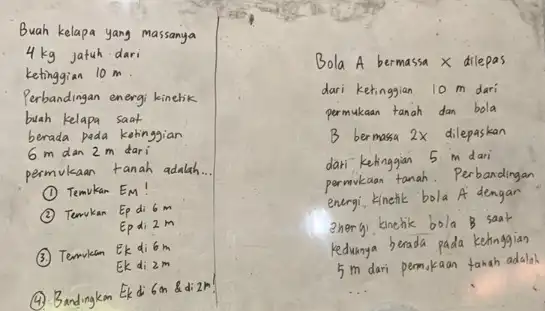 Buah kelapa yang massanya
4 kg jatuh dari
ketinggian 10 m.
Perbandingan energi kinetik
buah kelapa saat
berada pada ketinggian
6 m dan 2 m dari
permukaan tanah adalah...
① Temukan EM!
② Temukan Ep di 6 m
Ep di 2 m
③ Temukan Ek di 6m
Ek di 2m
④ Bandingkan Ek di 6m & di 2m!
Bola A bermassa x dilepas
dari ketinggian 10 m dari
permukaan tanah dan bola
B bermassa 2x dilepaskan
dari ketinggian 5 m dari
permukaan tanah. Perbandingan
energi kinetik bola A dengan
energi kinetik bola B saat
keduanya berada pada ketinggian
5 m dari permukaan tanah adalah
...